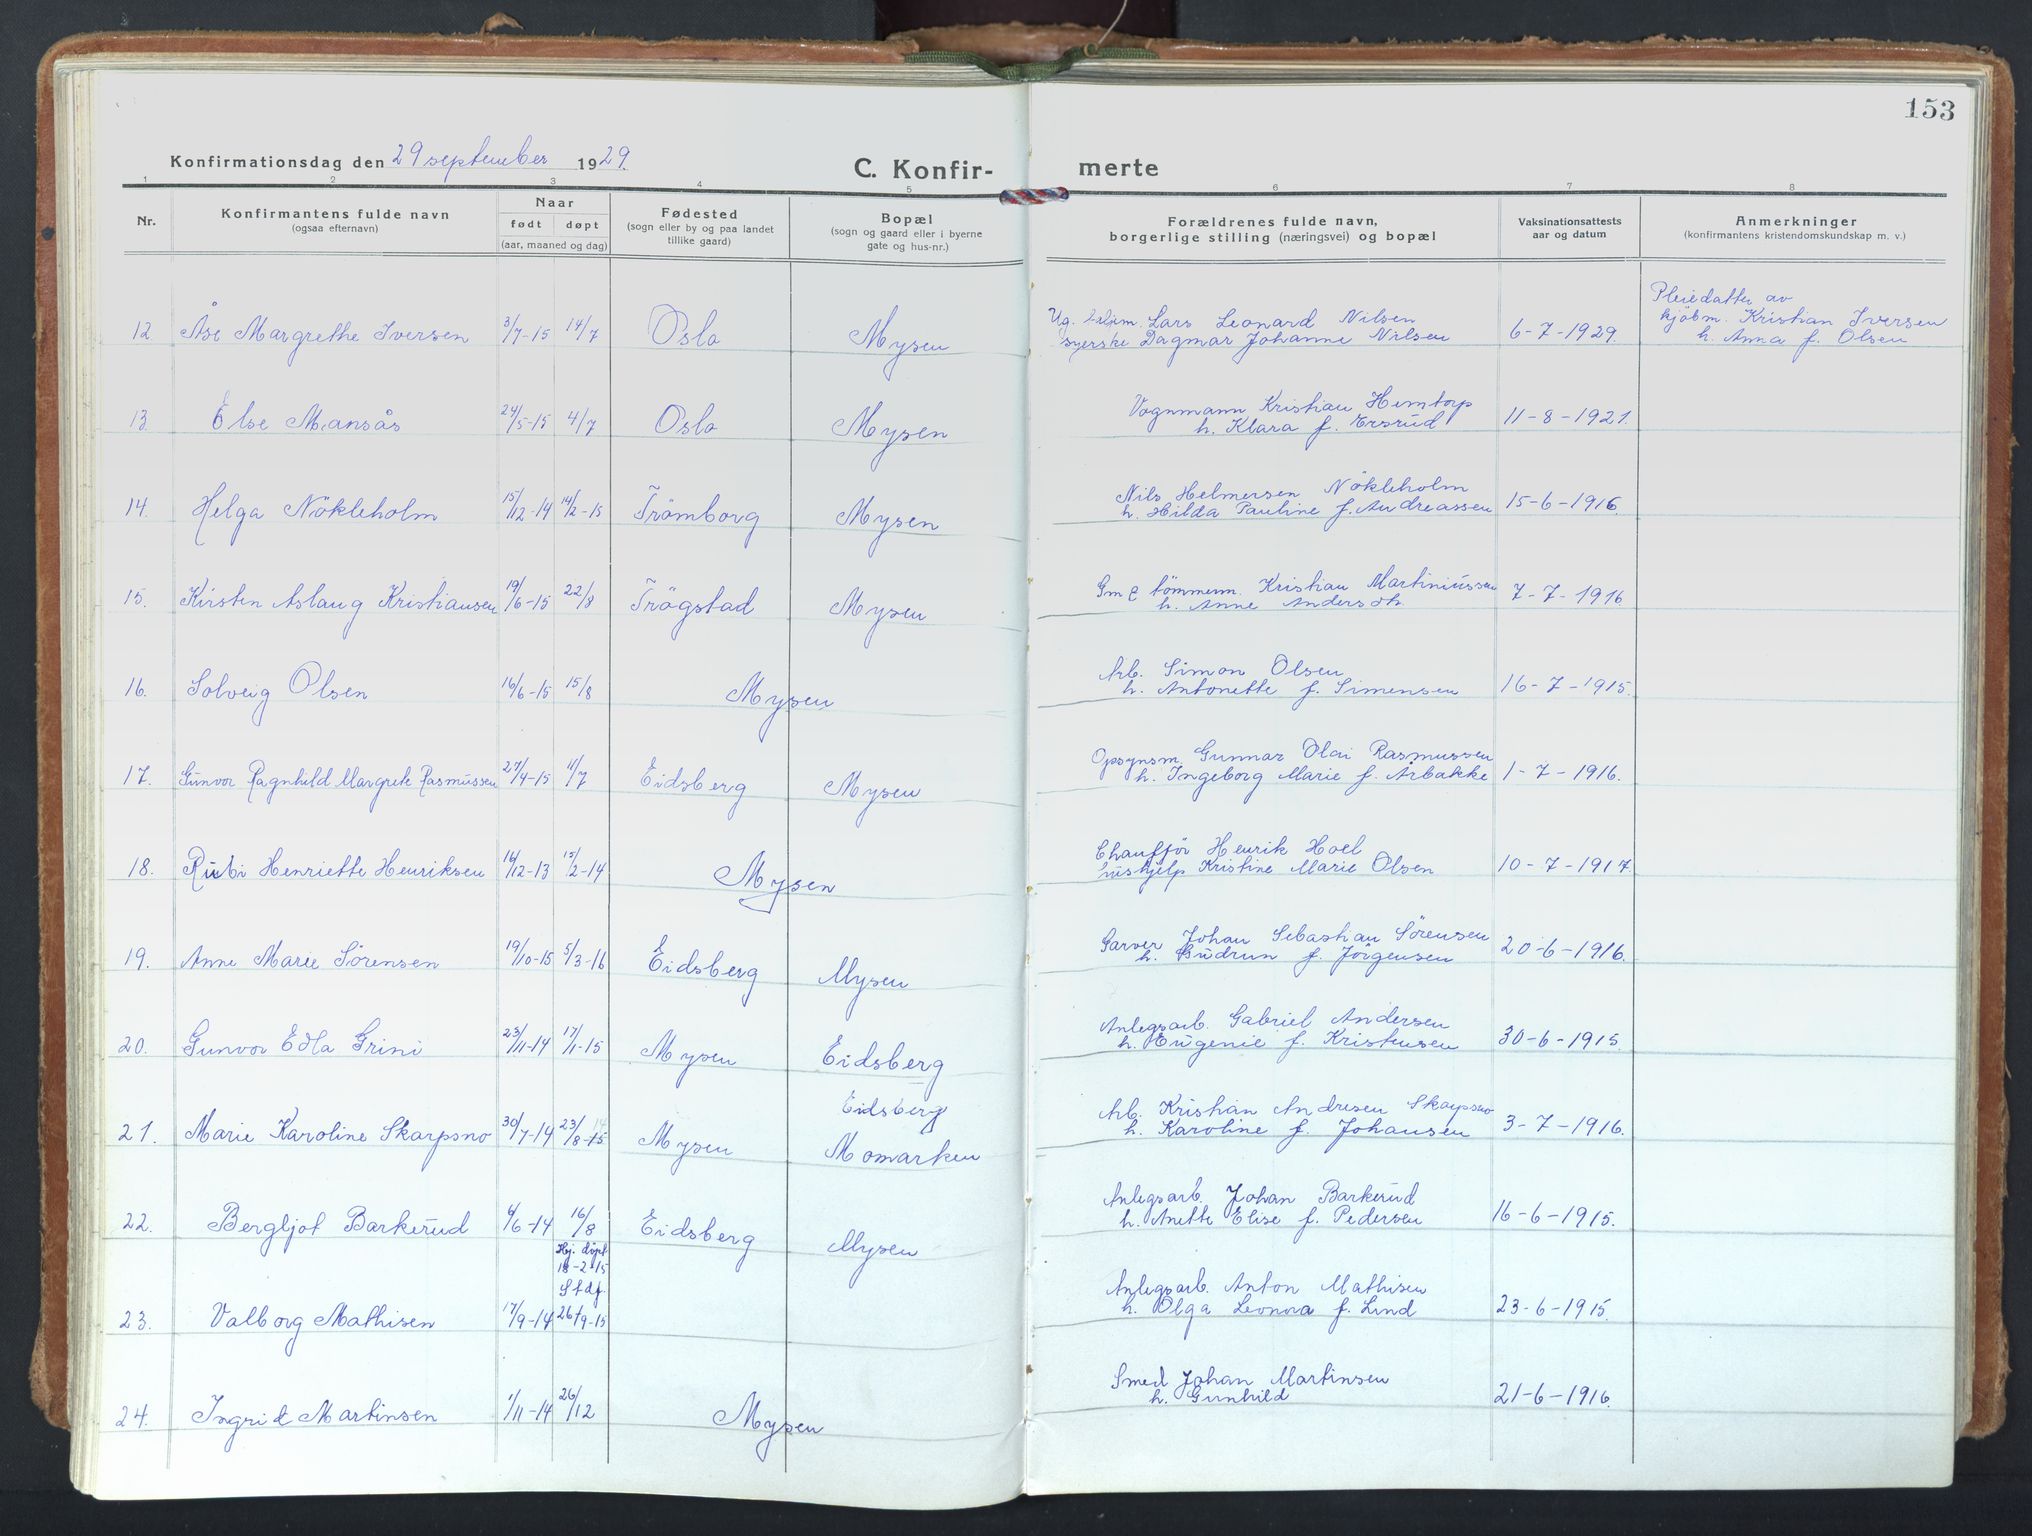 153
Konfirmationsdag den 29 september 1929.
C. Konfir- merte
1 2 3 4 5 6 7 8
Nr.
Konfirmantens fulde navn
(ogsaa efternavn)
Naar
født døpt
(aar, maaned og dag)
Fødested
(sogn eller by og paa landet
tillike gaard)
Bopæl
(sogn og gaard eller i byerne
gate og hus-nr.)
Forældrenes fulde navn,
borgerlige stilling (næringsvei) og bopæl
Vaksinationsattests
aar og datum
Anmerkninger
(konfirmantens kristendomskundskap m. v.)
12 Åse Margrethe Iversen 3/7-15 14/7 Oslo Mysen
Ug. Lars Leonard Nilsen
syerske Dagmar Johanne Nilsen
6-7-1929.
Pleiedatter av
kjøbm. Kristian Iversen
h. Anna f. Olsen
13. Else Mansås 24/5-15 4/7 Oslo Mysen
Vognmann Kristian Hemtorp
h. Klara f. Ersrud
11-8-1921.
14. Helga Nökleholm 15/12-14 14/2-15 Trömborg Mysen
Nils Helmersen Nökleholm
h. Hilda Pauline f. Andreassen
15-6-1916.
15. Kirsten Aslaug Kristiansen 19/6-15 22/8 Trögstad Mysen
Gm & tömmerm. Kristian Martiniussen
h. Anne Andersdh.
7-7-1916
16. Solveig Olsen 16/6-15 15/8 Mysen
Arb. Simon Olsen
h. Antonette f. Simensen
16-7-1915.
17. Gunvor Ragnhild Margrete Rasmussen 27/4-15 11/7 Eidsberg Mysen
Opsynsm. Gunnar Olai Rasmussen
h. Ingeborg Marie f. Årbakke
1-7-1916.
18. Rubi Henriette Henriksen 16/12-13 15/2-14 Mysen
Chaufför Henrik Hoel
hushjelp Kristine Marie Olsen
10-7-1917.
19. Anne Marie Sørensen 19/10-15 5/3-16 Eidsberg Mysen
Garver Johan Sebastian Sørensen
h. Gudrun f. Jörgensen
20-6-1916.
20. Gunvor Edla Grini 23/11-14 17/1-15 Mysen Eidsberg
Anlegsarb. Gabriel Andersen
h. Eugenie f. Kristensen
30-6-1915.
Eidsberg
21. Marie Karoline Skarpsno 30/7-14 23/8-15 14 Mysen Momarken
Arb. Kristian Andresen Skarpsno
h. Karoline f. Johansen
3-7-1916.
22. Bergljot Barkerud 4/6-14 16/8 Eidsberg Mysen
Anlegsarb. Johan Barkerud
h. Anette Elise f. Pedersen
16-6-1915.
Hj. döpt
18-2-15
Stdf.
23. Valborg Mathisen 17/9-14 26/9-15
Anlegsarb. Anton Mathisen
h. Olga Leonora f. Lind
23-6-1915.
24. Ingrid Martinsen 1/11-14 26/12 Mysen
Smed Johan Martinsen
h. Gunhild
21-6-1916.